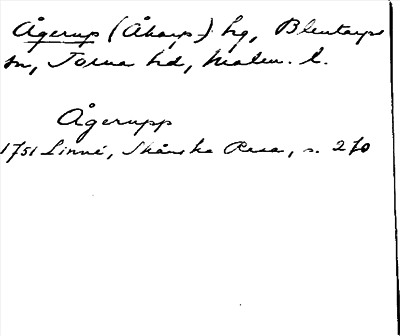 Ågerup (Åkarp) hg, Blentarps
sn, Torna hd, Malm. l.
Ågerupp
1751 Linné, Skånska Resa, s. 270